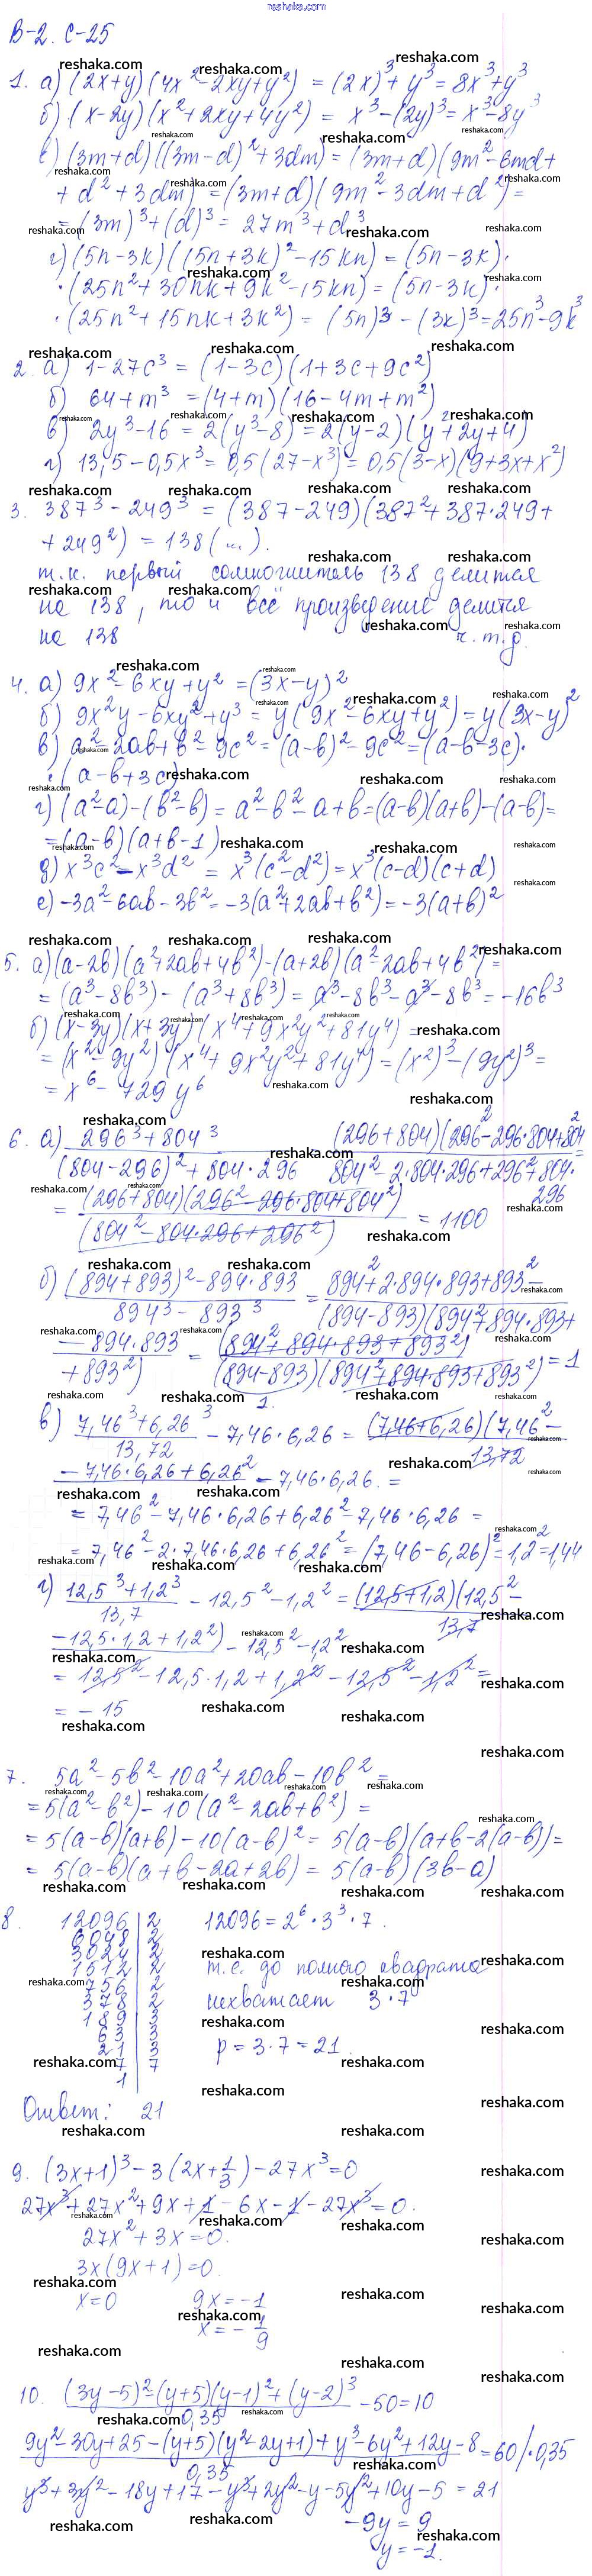 reshaka.com
В-2. С-25
1. а) (2x+y)(4x²-2xy+y²) = (2x)³+y³ = 8x³+y³
б) (x-2y)(x²+2xy+4y²) = x³-(2y)³ = x³-8y³
в) (3m+d)((3m-d)²+3dm) = (3m+d)(9m²-6md+
+d²+3dm) = (3m+d)(9m²-3dm+d²) =
= (3m)³+(d)³ = 27m³+d³
г) (5n-3k)((5n+3k)²-15kn) = (5n-3k)·
·(25n²+30nk+9k²-15kn) = (5n-3k)·
·(25n²+15nk+3k²) = (5n)³-(3k)³=25n³-9k³
2. а) 1-27c³ = (1-3c)(1+3c+9c²)
б) 64+m³ = (4+m)(16-4m+m²)
в) 2y³-16 = 2(y³-8) = 2(y-2)(y²+2y+4)
г) 13,5-0,5x³ = 0,5(27-x³) = 0,5(3-x)(9+3x+x²)
3. 387³-249³ = (387-249)(387²+387·249+
+249²) = 138(...).
т.к. первый сомножитель 138 делится
на 138, то и всё произведение делится
на 138 ч.т.д.
4. а) 9x²-6xy+y² = (3x-y)²
б) 9x²y-6xy²+y³ = y(9x²-6xy+y²) = y(3x-y)²
в) a²-2ab+b²-9c² = (a-b)²-9c² = (a-b-3c)·
·(a-b+3c)
г) (a²-a)-(b²-b) = a²-b²-a+b=(a-b)(a+b)-(a-b)=
=(a-b)(a+b-1)
д) x³c²-x³d² = x³(c²-d²) = x³(c-d)(c+d)
е) -3a²-6ab-3b² = -3(a²+2ab+b²) = -3(a+b)²
5. а) (a-2b)(a²+2ab+4b²)-(a+2b)(a²-2ab+4b²) =
= (a³-8b³)-(a³+8b³) = a³-8b³-a³-8b³ = -16b³
б) (x-3y)(x+3y)(x⁴+9x²y²+81y⁴) =
= (x²-9y²)(x⁴+9x²y²+81y⁴) = (x²)³-(9y²)³ =
= x⁶-729y⁶
6. а) 296³+804³ (296+804)(296²-296·804+804²
(804-296)²+804·296 804²-2·804·296+296²+804· =
296
= (296+804)(296²-296·804+804²)
(804²-804·296+296²) = 1100
б) (894+893)²-894·893 = 894²+2·894·893+893²-
894³-893³ (894-893)(894²+894·893+
-894·893 = (894²+894·893+893²)
+893²) (894-893)(894²+894·893+893²) = 1
1.
в) 7,46³+6,26³ - 7,46·6,26 = (7,46+6,26)(7,46²-
13,72 13,72
-7,46·6,26+6,26² - 7,46·6,26. =
= 7,46²-7,46·6,26+6,26²-7,46·6,26 =
= 7,46²-2·7,46·6,26+6,26² = (7,46-6,26)²=1,2²=1,44
г) 12,5³+1,2³ - 12,5²-1,2² = (12,5+1,2)(12,5²-
13,7 13,7
-12,5·1,2+1,2²) - 12,5²-1,2²
= 12,5²-12,5·1,2+1,2²-12,5²-1,2² =
= -15
7. 5a²-5b²-10a²+20ab-10b² =
=5(a²-b²)-10(a²-2ab+b²) =
=5(a-b)(a+b)-10(a-b)² = 5(a-b)(a+b-2(a-b))=
= 5(a-b)(a+b-2a+2b) = 5(a-b)(3b-a)
8. 12096|2 12096=2⁶·3³·7.
6048|2
3024|2
1512|2 т.е. до полного квадрата
756|2
378|2 нехватает 3·7
189|3
63|3
21|3 p=3·7=21.
7|7
1
Ответ: 21
9. (3x+1)³-3(2x+1/3)-27x³=0
27x³+27x²+9x+1-6x-1-27x³=0.
27x²+3x=0.
3x(9x+1)=0.
x=0 9x=-1
x=-1/9
10. (3y-5)²-(y+5)(y-1)²+(y-2)³ -50=10
0,35
9y²-30y+25-(y+5)(y²-2y+1)+y³-6y²+12y-8 =60/·0,35
0,35
y³+3y²-18y+17-y³+2y²-y-5y²+10y-5 = 21
-9y=9
y=-1.